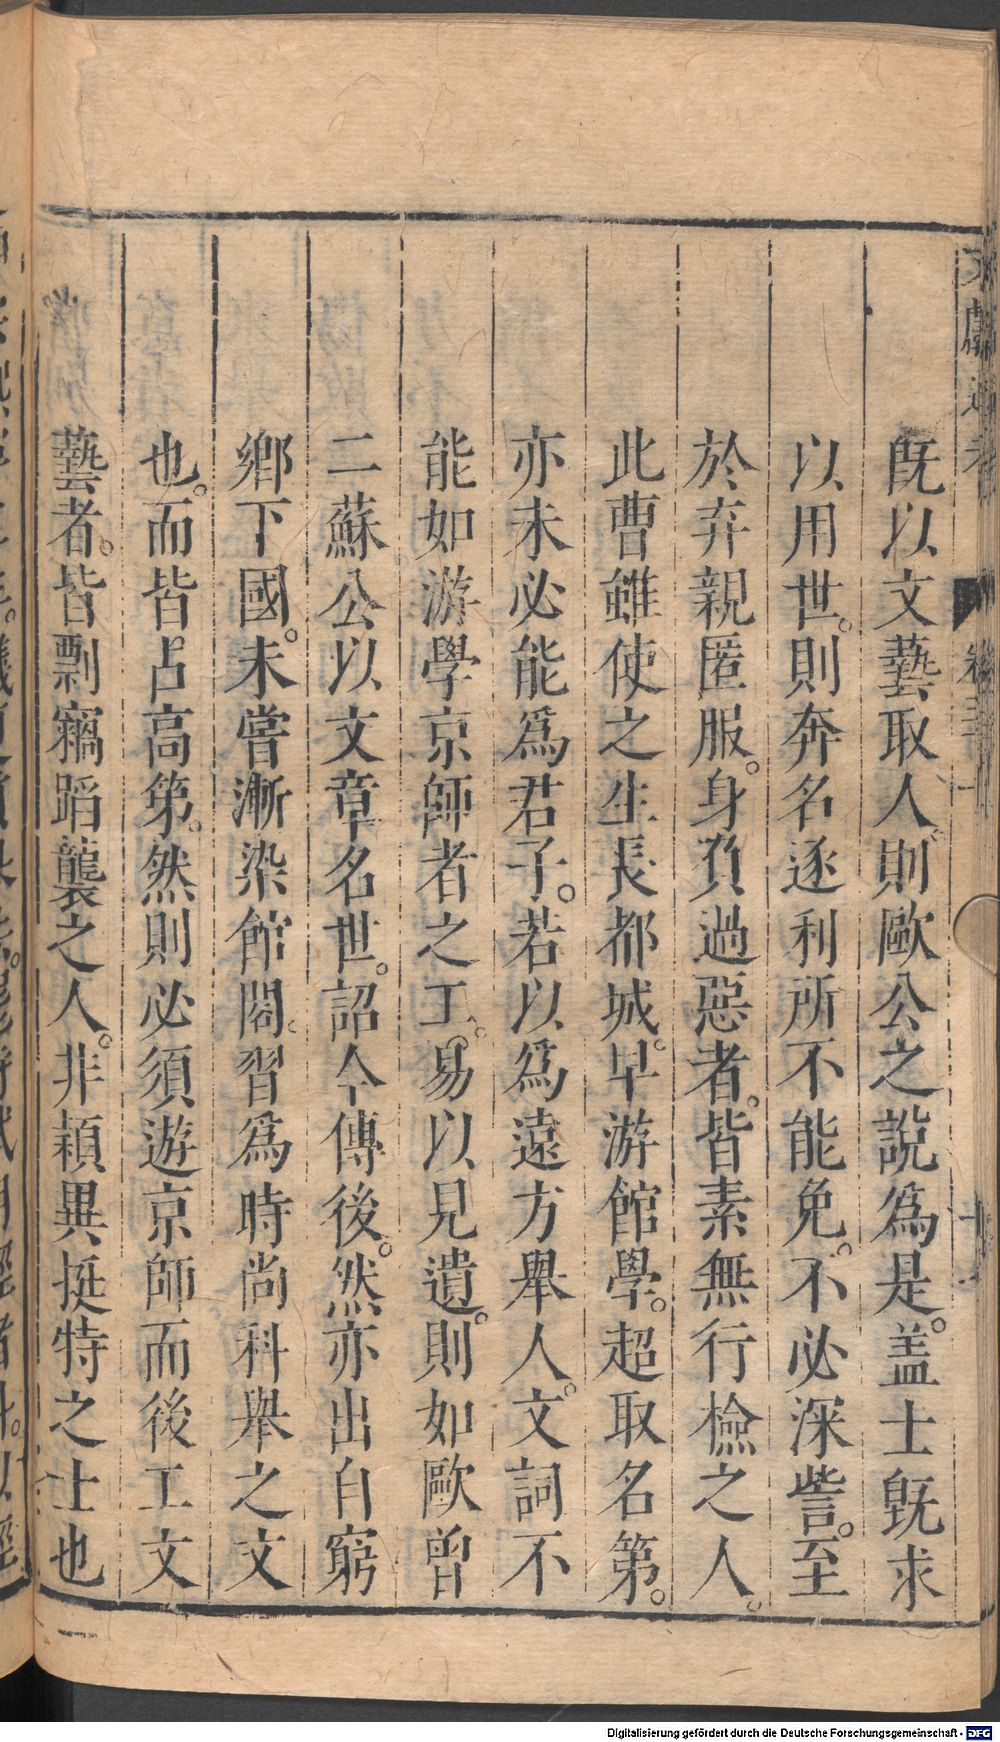 既以文藝取人則歐公之說爲是。盖士既求
以用世。則奔名逐利所不能免。不必深訾。至
於弃親匿服。身負過惡者。皆素無行檢之人。
此曹雖使之生長都城。早游館學。超取名第。
亦未必能爲君子。若以爲遠方舉人。文詞不
能如游學京師者之工。易以見遺。則如歐曾
二蘇公以文章名世。詔今傳後。然亦出自窮
鄉下國。未嘗漸染館閣。習爲時尚科舉之文
也。而皆占高第。然則必須遊京師而後工文
藝者。皆剽竊蹈襲之人。非穎異挺特之士也
Digitalisierung gefördert durch die Deutsche Forschungsgemeinschaft - DFG